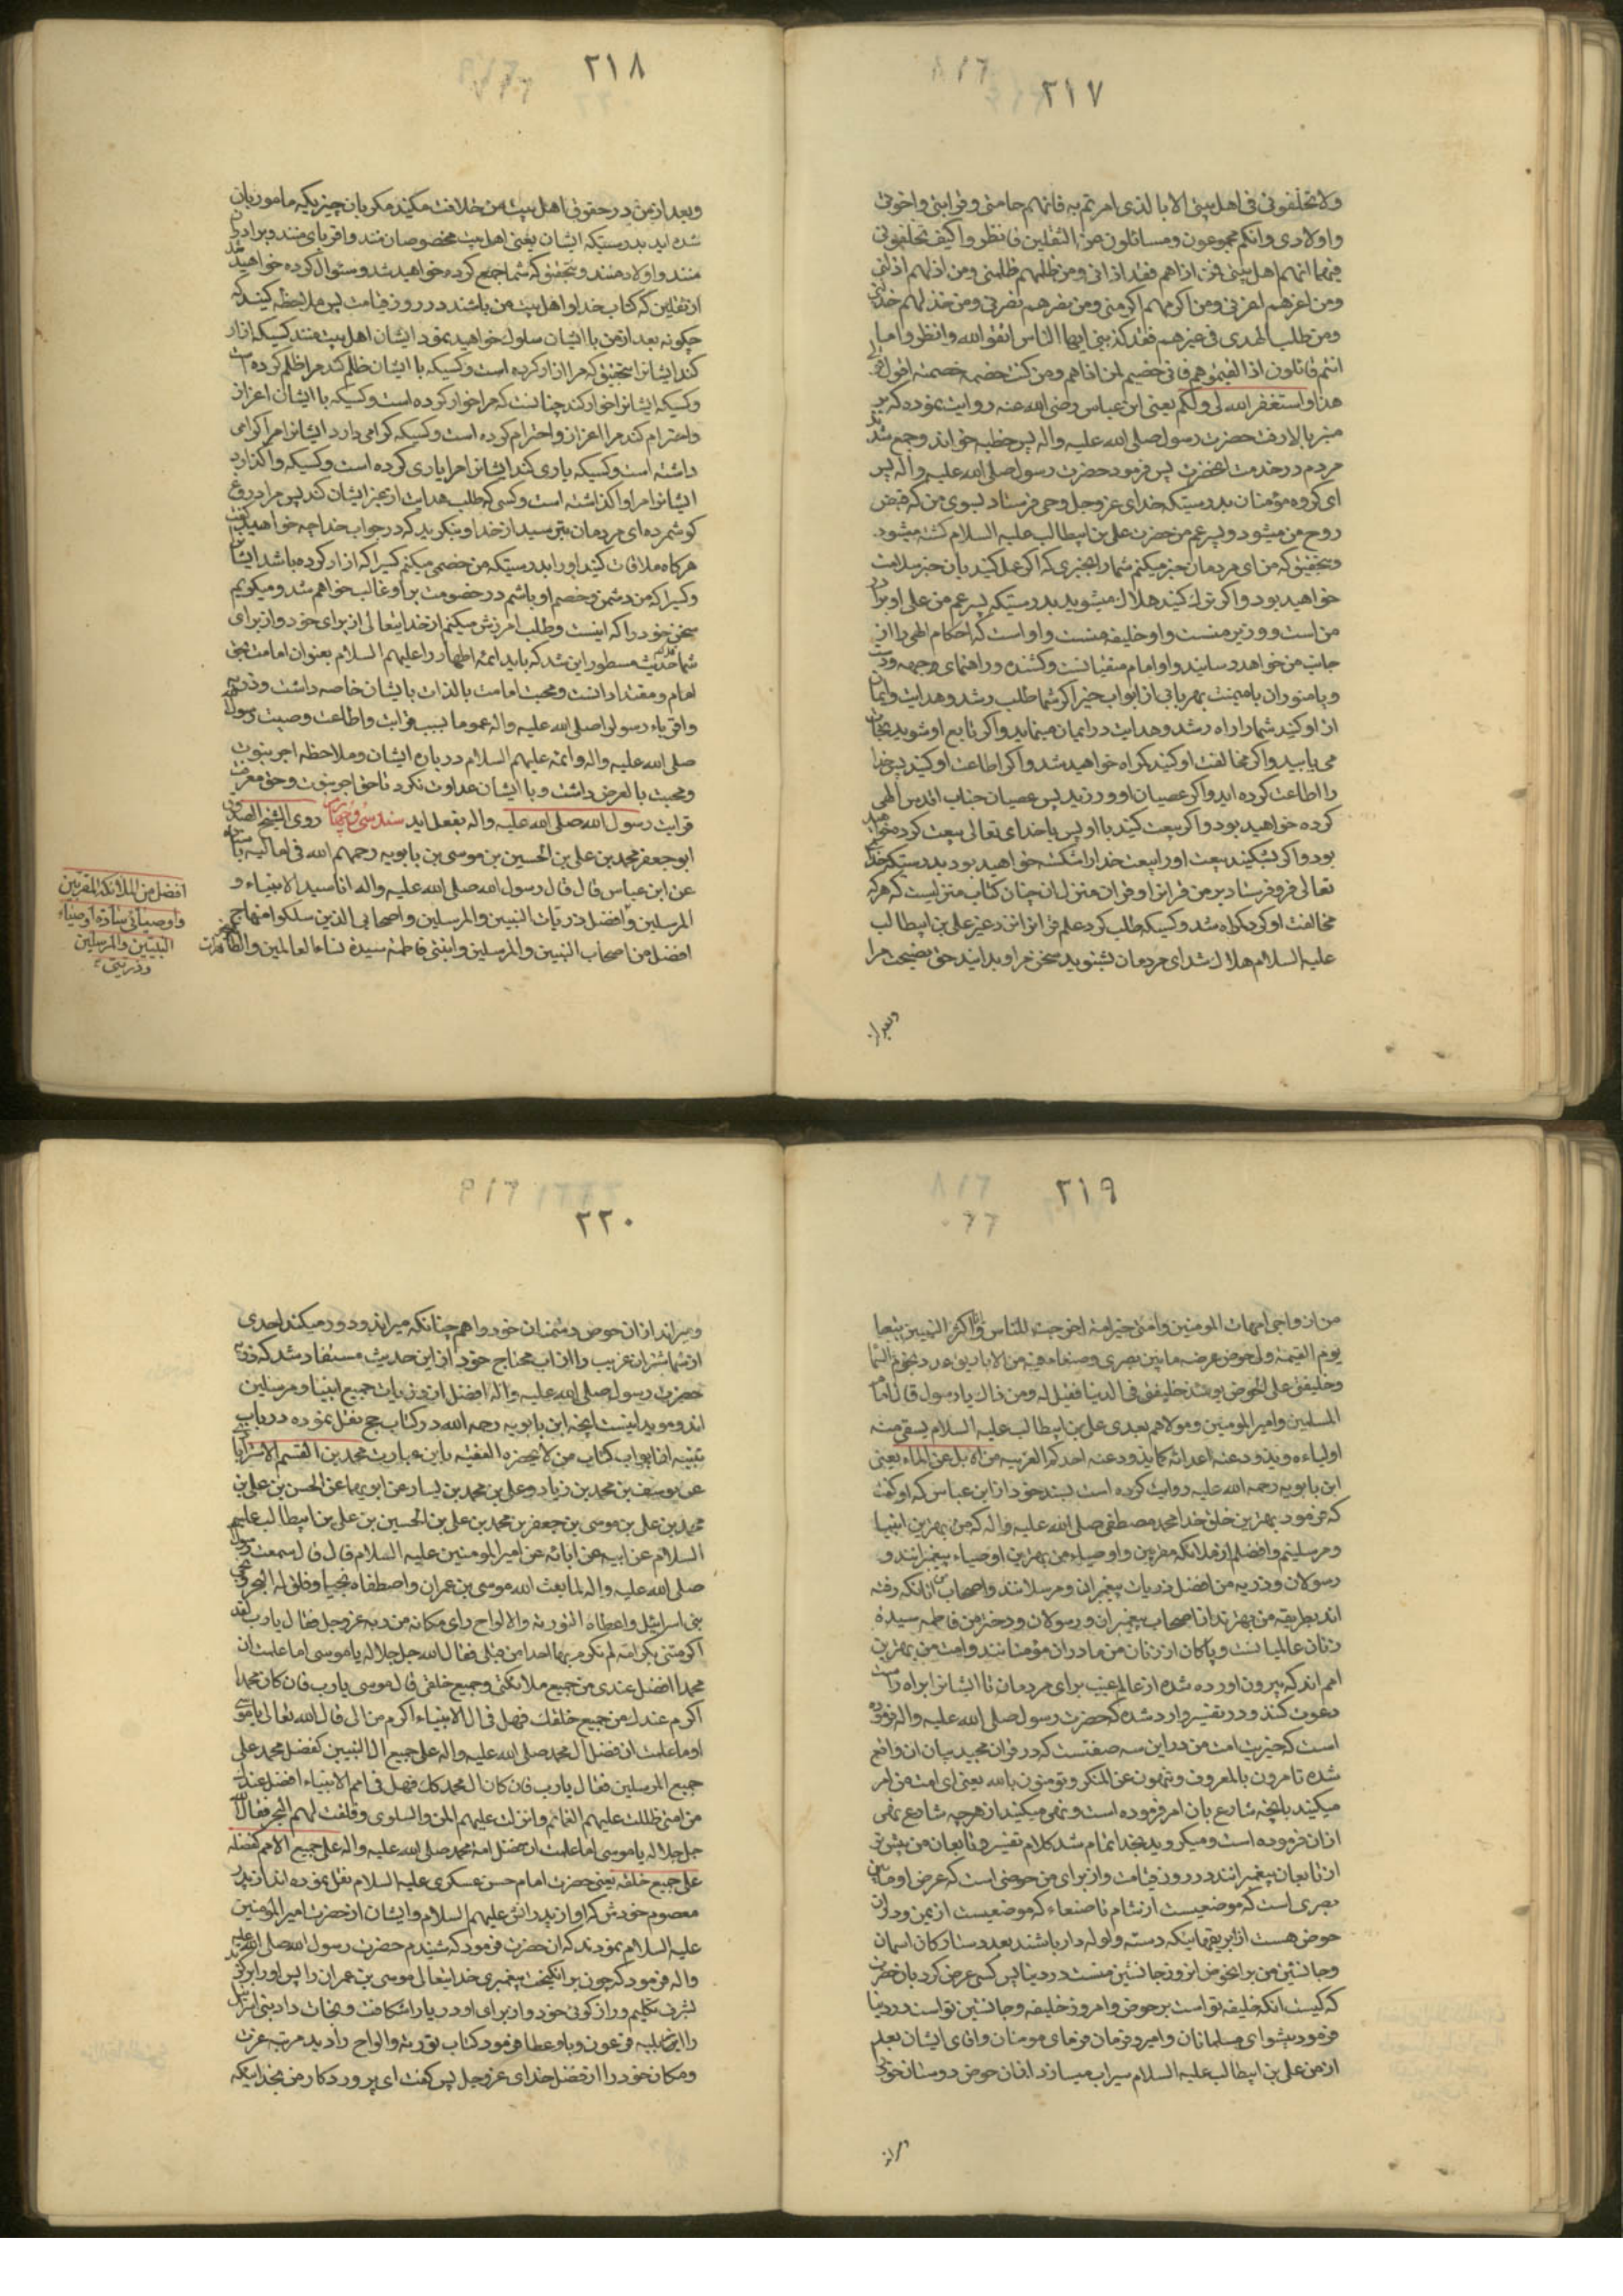 ٢١٧
ولا تخلفونی فی اهل بیتی الا بالذی امرتم به فانهم حامتی وقرابتی واخوتی
واولادی وانکم مجموعون ومسائلون عن الثقلین فانظروا کیف تخلفونی
فیهما انهم اهل بیتی فمن اذاهم فقد اذانی ومن ظلمهم ظلمنی ومن اذلهم اذلنی
ومن اعزهم اعزنی ومن اکرمهم اکرمنی ومن نصرهم نصرنی ومن خذلهم خذلنی
ومن طلب الهدی فی غیرهم فقد کذبنی ایها الناس اتقوا الله وانظروا ما
انتم قائلون اذا لقیتموهم فانی خصیم لمن اذاهم ومن کنت خصمه خصمته اقول قولی
هذا واستغفر الله لی ولکم یعنی ابن عباس رضی الله عنه روایت نموده که بر
منبر بالا رفت حضرت رسول صلی الله علیه واله پس خطبه خواند وجمع شدند
مردم در خدمت انحضرت پس فرمود حضرت رسول صلی الله علیه واله پس
ای کروه مؤمنان بدرستیکه خدای عز وجل وحی فرستاد بسوی من که قبض
روح من میشود وپسر عم من حضرت علی بن ابیطالب علیه السلام کشته میشود
وبتحقیق که من ای مردمان خبر میکنم شما را بخبری که اکر عمل کنید بان خبر سلامت
خواهید بود واکر ترک کنید هلاک میشوید بدرستیکه پسر عم من علی او برادر
من است ووزیر منست واو خلیفه منست واو است که احکام الهی را از
جانب من خواهد رسانید واو امام متقیانست وکشنده وراهنمای
از او کنید شما را راه رشد وهدایت در ایمان مینماید واکر تابع او شوید نجات
می یابید واکر مخالفت او کنید کمراه خواهید شد واکر اطاعت او کنید پس خدا
را اطاعت کرده اید واکر عصیان او ورزید پس عصیان جناب اقدس الهی
کرده خواهید بود واکر بیعت کنید با او پس با خدای تعالی بیعت کرده خواهید
بود واکر بشکنید بیعت او را بیعت خدا را شکسته خواهید بود بدرستیکه خدای
تعالی فرو فرستاد بر من قران را وقران منزل ان چنان کتاب منزلیست که هر که
مخالفت او کرد کمراه شد وکسیکه طلب کرد علم قرانرا نزد غیر علی بن ابیطالب
علیه السلام هلاک شد ای مردمان بشنوید سخن مرا وبدانید حق نصیحت مرا
وبعد از
٢١٨
وبعد از من در حقوق اهل بیت من خلافت مکنید مکر بان چیزیکه مامور بان
شده اید بدرستیکه ایشان یعنی اهل بیت مخصوصان منند واقربای منند وبرادران
منند واولاد منند وبتحقیق که شما جمع کرده خواهید شد وسئوال کرده خواهید شد
از ثقلین که کتاب خدا واهل بیت من باشند در روز قیامت پس ملاحظه کنید که
چکونه بعد از من با ایشان سلوک خواهید نمود ایشان اهل بیت منند کسیکه ازار
کند ایشانرا بتحقیق که مرا ازار کرده است وکسیکه با ایشان ظلم کند مرا ظلم کرده است
وکسیکه ایشانرا خوار کند چنانست که مرا خوار کرده است وکسیکه با ایشان اعزاز
واحترام کند مرا اعزاز واحترام کرده است وکسیکه کرامی دارد ایشانرا مرا کرامی
داشته است وکسیکه یاری کند ایشانرا مرا یاری کرده است وکسیکه واکذارد
ایشانرا مرا واکذاشته است وکسی که طلب هدایت از غیر ایشان کند پس مرا دروغ
کو شمرده ای مردمان بترسید از خدا وبنکرید که در جواب خدا چه خواهید کفت
هر کاه ملاقات کنید او را بدرستیکه من خصمی میکنم کسیرا که ازار کرده باشد ایشانرا
وکسیرا که من دشمن وخصم او باشم در خصومت بر او غالب خواهم شد ومیکویم
سخن خود را که اینست وطلب امرزش میکنم از خدایتعالی از برای خود واز برای
شما حدیث مسطور این شد که باید ائمه اطهار را علیهم السلام بعنوان امامت یعنی
امام ومقتدا دانست ومحبت امامت بالذات بایشان خاصه داشت وذریه
واقرباء رسول را صلی الله علیه واله عموما بسبب قرابت واطاعت وصیت رسول
صلی الله علیه واله وائمه علیهم السلام در باره ایشان وملاحظه اجر نبوت
ومحبت بالعرض داشت وبا ایشان عداوت نکرد تا حق اجر نبوت وحق معرفت
قرابت رسول الله صلی الله علیه واله بفعل اید سند سی وچهارم روی الشیخ الصدوق
ابو جعفر محمد بن علی بن الحسین بن موسی بن بابویه رحمهم الله فی امالیه باسناده
عن ابن عباس قال قال رسول الله صلی الله علیه واله انا سید الانبیاء و
المرسلین وافضل ذریات النبیین والمرسلین واصحابی الذین سلکوا منهاجی
افضل من اصحاب النبیین والمرسلین وابنتی فاطمة سیدة نساء العالمین والطاهرات
افضل من الملائکة المقربین
واوصیائی سادة اوصیاء
النبیین والمرسلین
وذریتی
٢١٩
من ازواجی امهات المومنین وامتی خیر امة اخرجت للناس وانا اکثر النبیین تبعا
یوم القیمة ولی حوض عرضه ما بین بصری وصنعاء فیه من الاباریق عدد نجوم السماء
وخلیفتی علی الحوض یومئذ خلیفتی فی الدنیا فقیل له ومن ذاک یا رسول قال امام
المسلمین وامیر المومنین ومولاهم بعدی علی بن ابیطالب علیه السلام یسقی منه
اولیاءه ویذود عنه اعداءه کما یذود عنه احدکم الغریبه من الابل عن الماء یعنی
ابن بابویه رحمه الله علیه روایت کرده است بسند خود از ابن عباس که او کفت
که فرمود بهترین خلق خدا محمد مصطفی صلی الله علیه واله که من بهترین انبیا
ومرسلینم وافضلم از ملائکه مقربین واوصیاء من بهترین اوصیاء پیغمبرانند و
رسولان وذریه من افضل ذریات پیغمبران ومرسلانند واصحاب من انانکه رفته
اند بطریقه من بهترند از اصحاب پیغمبران ورسولان ودختر من فاطمه سیده
زنان عالمیانست وپاکان از زنان من مادران مؤمنانند وامت من بهترین
امم اند که بیرون اورده شده از عالم غیب برای مردمان تا ایشانرا براه راست
دعوت کنند ودر تفسیر وارد شده که حضرت رسول صلی الله علیه واله فرموده
است که خیریت امت من در این سه صفتست که در قران مجید بیان ان واقع
شده تامرون بالمعروف وتنهون عن المنکر وتومنون بالله یعنی ای امت من امر
میکنید بانچه شارع بان امر فرموده است ونهی میکنید از هر چه شارع نهی
از ان فرموده است ومیکروید بخدا تمام شد کلام تفسیر وتابعان من بیشتر
از تابعان پیغمبرانند در روز قیامت واز برای من حوضی است که عرض او مابین
بصری است که موضعیست از شام تا صنعاء که موضعیست از یمن ودر ان
حوض هست از ابریقهائیکه دسته ولوله دار باشند بعدد ستارکان اسمان
وجانشین من بر انحوض انروز جانشین منست در دنیا پس کسی عرض کرد بانحضرت
که کیست انکه خلیفه تو است بر حوض وامروز خلیفه وجانشین تو است در دنیا
فرمود پیشوای مسلمانان وامیر وفرمان فرمای مومنان واقای ایشان بعد
از من علی بن ابیطالب علیه السلام سیراب میسازد از ان حوض دوستان خود را
ومیراند
٢٢٠
ومیراند از ان حوض دشمنان خود را همچنانکه میراند ودور میکند احدی
از شما شتران غریب را از اب محتاج خود از این حدیث مستفاد شد که ذریه
حضرت رسول صلی الله علیه واله افضل از ذریات جمیع انبیا ومرسلین
اند وموید اینست انچه ابن بابویه رحمه الله در کتاب حج نقل نموده در باب
تلبیه از ابواب کتاب من لا یحضره الفقیه باین عبارت محمد بن القسم الاسترابادی
عن یوسف بن محمد بن زیاد وعلی بن محمد بن یسار عن ابویهما عن الحسن بن علی بن
محمد بن علی بن موسی بن جعفر بن محمد بن علی بن الحسین بن علی بن ابیطالب علیهم
السلام عن ابیه عن ابائه عن امیر المومنین علیه السلام قال قال سمعت رسول الله
صلی الله علیه واله لما بعث الله موسی بن عمران واصطفاه نجیا وفلق له البحر ونجی
بنی اسرائیل واعطاه التوریة والالواح رای مکانه من ربه عز وجل فقال یا رب لقد
اکرمتنی بکرامة لم تکرم بها احدا من قبلی فقال الله جل جلاله یا موسی اما علمت ان
محمدا افضل عندی من جمیع ملائکتی وجمیع خلقی قال موسی یا رب فان کان محمدا
اکرم عندک من جمیع خلقک فهل فی ال الانبیاء اکرم من الی قال الله تعالی یا موسی
اوما علمت ان فضل ال محمد صلی الله علیه واله علی جمیع ال النبیین کفضل محمد علی
جمیع المرسلین فقال یا رب فان کان ال محمد کذلک فهل فی امم الانبیاء افضل عندک
من امتی ظللت علیهم الغمام وانزلت علیهم المن والسلوی وفلقت لهم البحر فقال الله
جل جلاله یا موسی اما علمت ان فضل امة محمد صلی الله علیه واله علی جمیع الامم کفضله
علی جمیع خلقه یعنی حضرت امام حسن عسکری علیه السلام نقل نموده اند از پدر
معصوم خودش که او از پدرانش علیهم السلام وایشان از حضرت امیر المؤمنین
علیه السلام نمودند که ان حضرت فرمود که شنیدم حضرت رسول الله صلی الله علیه
واله فرمود که چون برانکیخت پیغمبری خدایتعالی موسی بن عمران را پس او را برکزید
بشرف تکلیم وراز کوئی خود واز برای او دریا را شکافت ونجات داد بنی اسرائیل
را از بلیه فرعون وباو عطا فرمود کتاب توریة والواح را دید مرتبه عزت
ومکان خود را از فضل خدای عز وجل پس کفت ای پروردکار من بتحقیق که